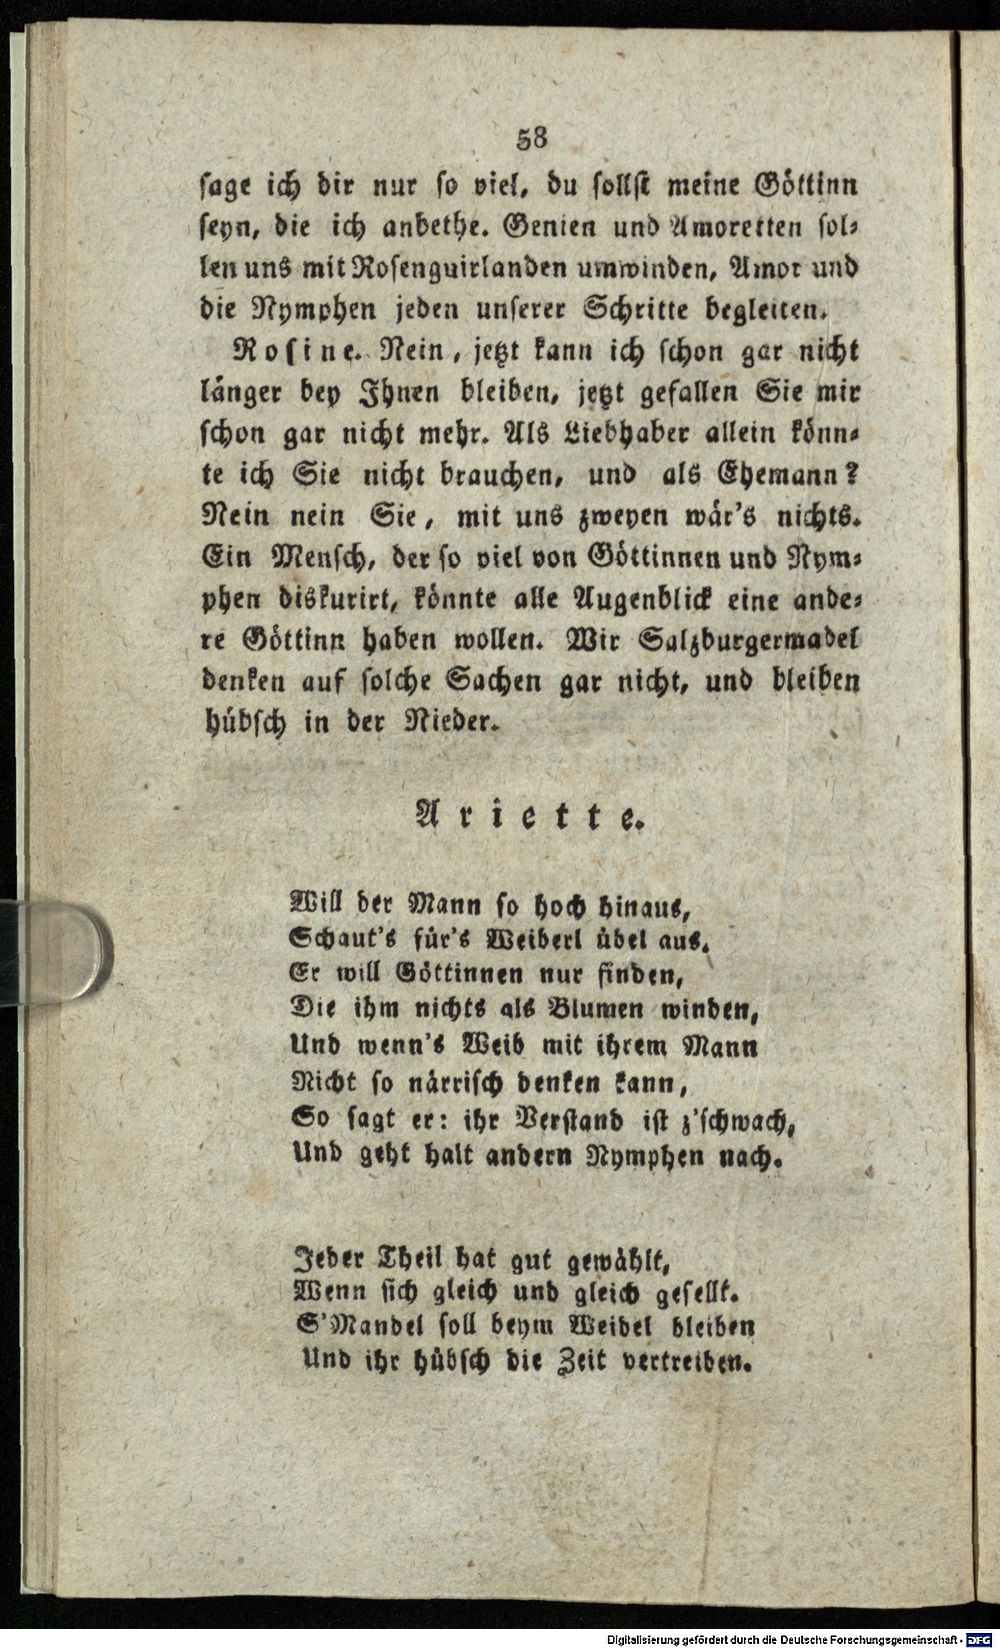 58
sage ich dir nur so viel, du sollst meine Göttinn
seyn, die ich anbethe. Genien und Amoretten sol-
len uns mit Rosenguirlanden umwinden, Amor und
die Nymphen jeden unserer Schritte begleiten.
Rosine. Nein, jetzt kann ich schon gar nicht
länger bey Ihnen bleiben, jetzt gefallen Sie mir
schon gar nicht mehr. Als Liebhaber allein könn-
te ich Sie nicht brauchen, und als Ehemann?
Nein nein Sie, mit uns zweyen wär's nichts.
Ein Mensch, der so viel von Göttinnen und Nym-
phen diskurirt, könnte alle Augenblick eine ande-
re Göttinn haben wollen. Wir Salzburgermadel
denken auf solche Sachen gar nicht, und bleiben
hübsch in der Nieder.
Ariette.
Will der Mann so hoch hinaus,
Schaut's für's Weiberl übel aus.
Er will Göttinnen nur finden,
Die ihm nichts als Blumen winden,
Und wenn's Weib mit ihrem Mann
Nicht so närrisch denken kann,
So sagt er: ihr Verstand ist z'schwach,
Und geht halt andern Nymphen nach.
Jeder Theil hat gut gewählt,
Wenn sich gleich und gleich gesellt.
S'Mandel soll beym Weibel bleiben
Und ihr hübsch die Zeit vertreiben.
Digitalisierung gefördert durch die Deutsche Forschungsgemeinschaft - DFG